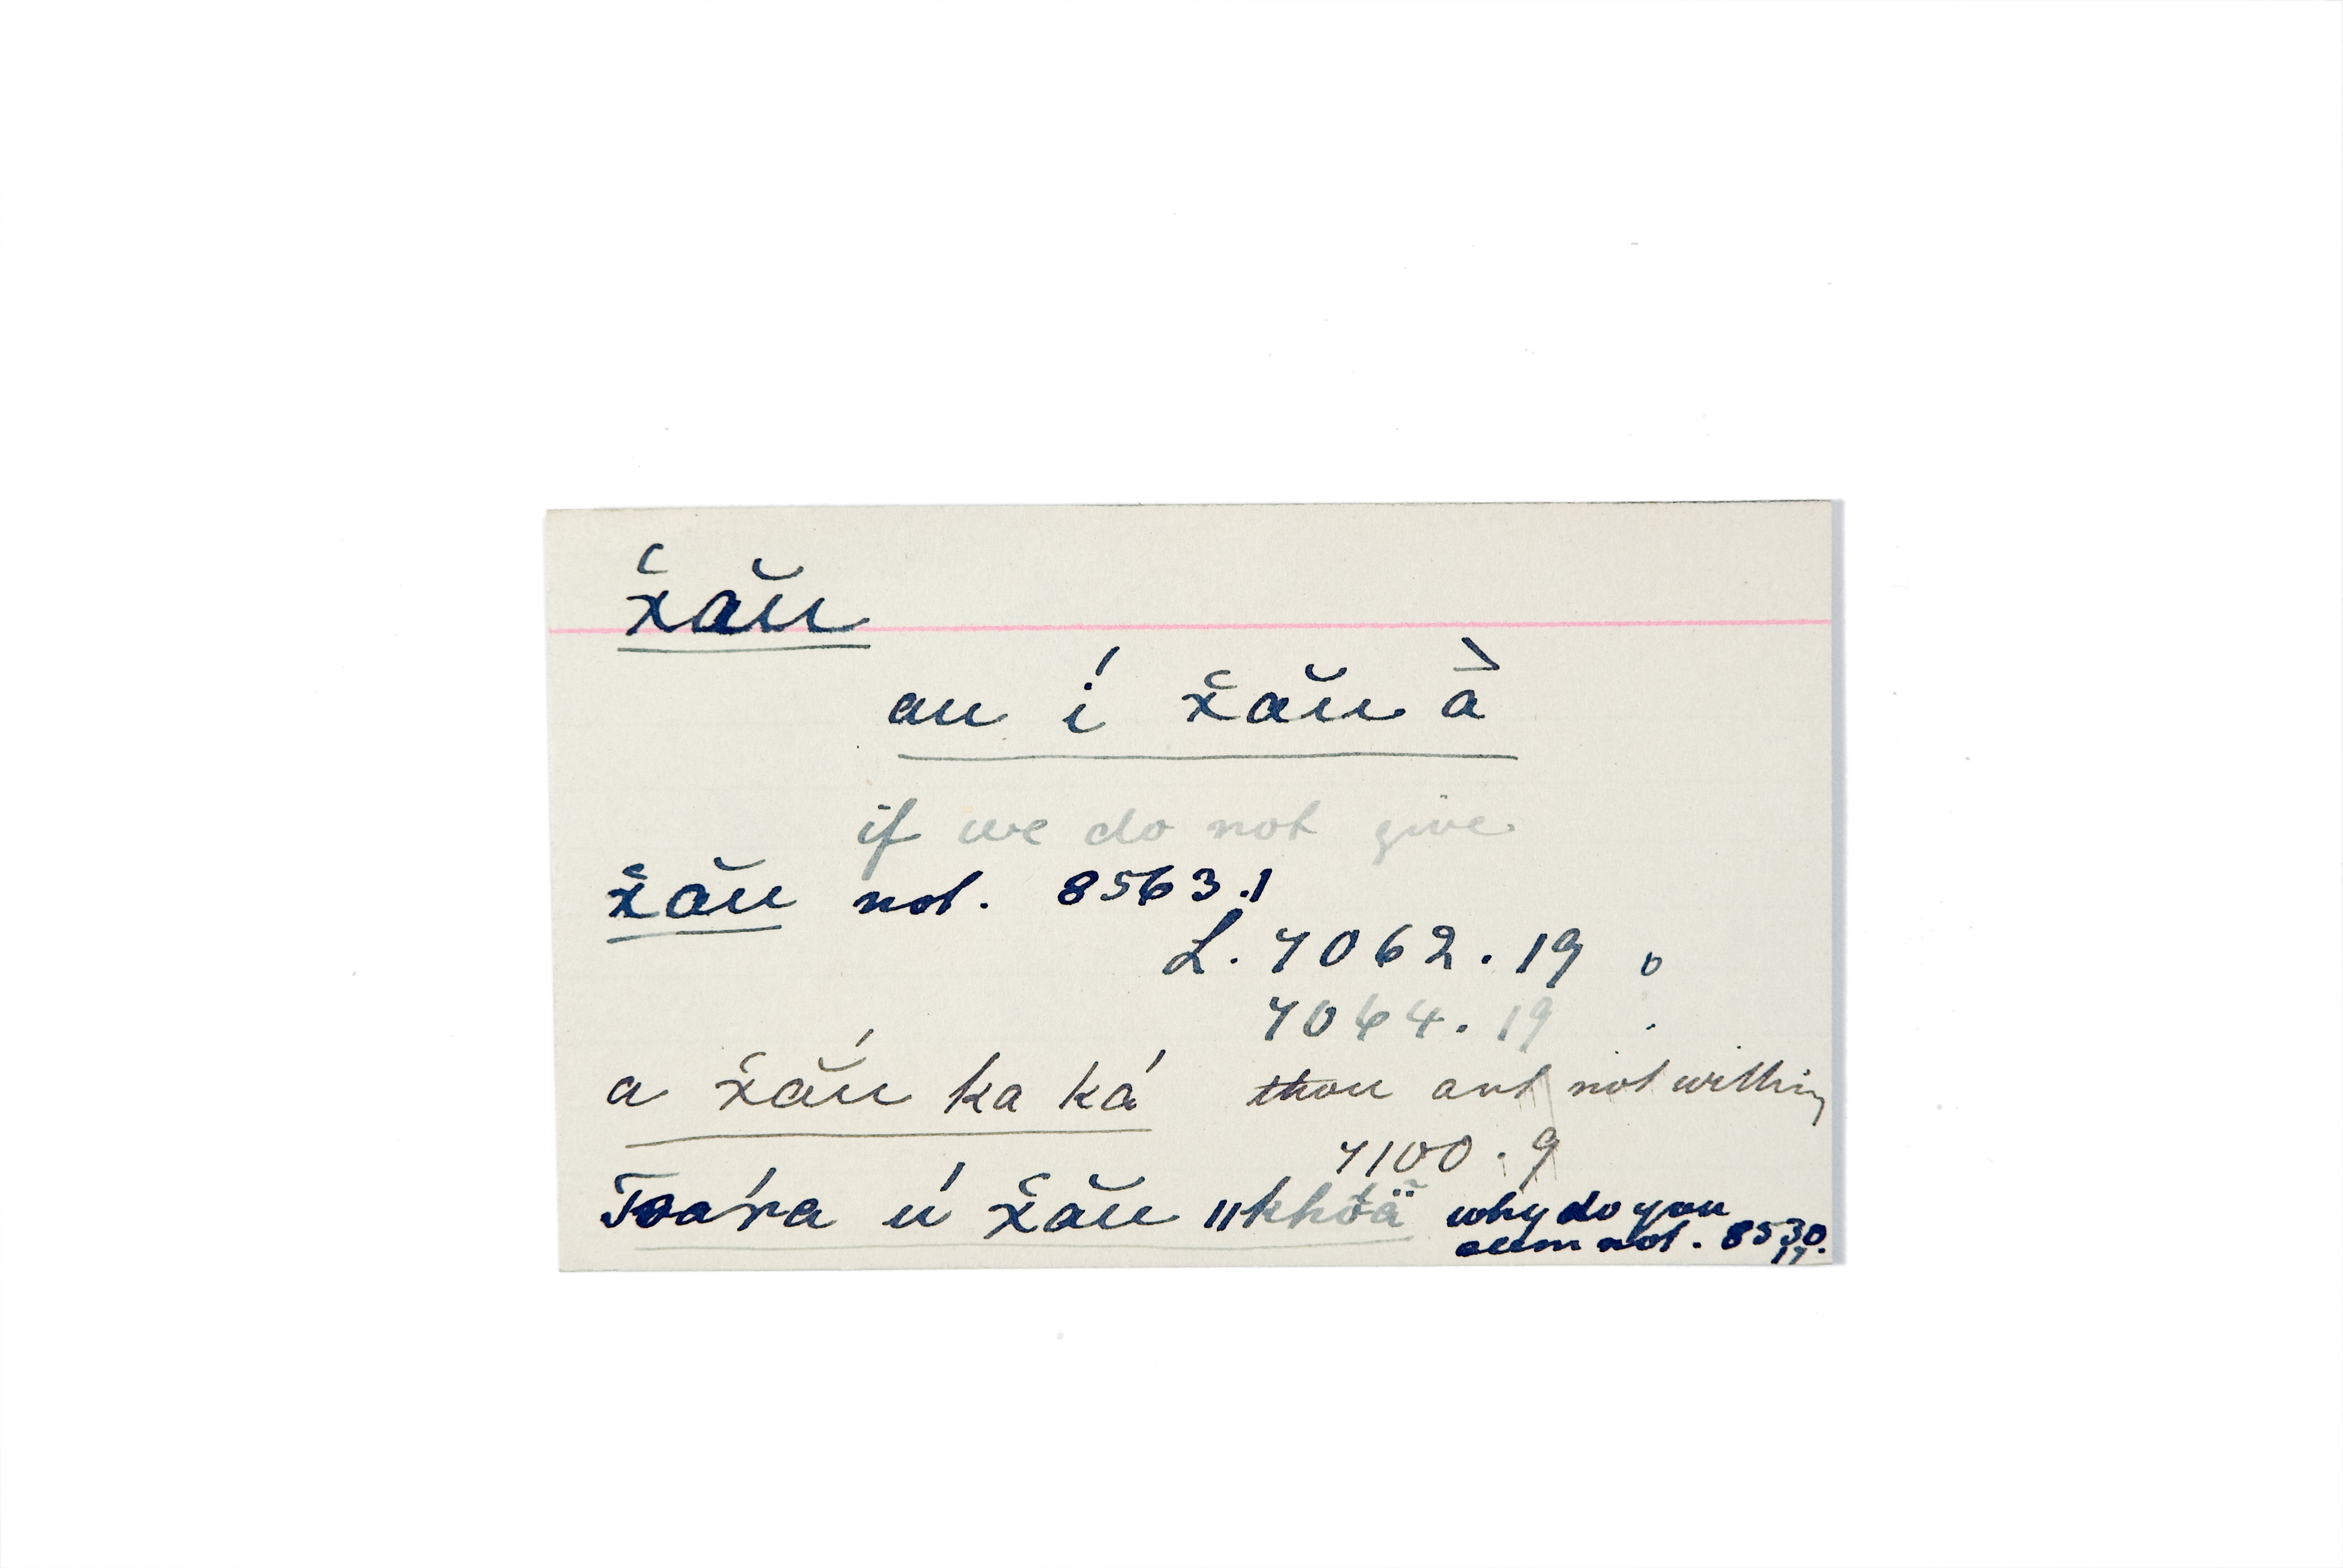 x̆ău
au í x̆ău à
if we do not give
x̆ău not. 8563.1
L. 7062.19
7064.19
a x̆ắu ka ká thou art not willing
7100.9
ú x̆ău ǁkhöä why do you
seem not. 8530.
17.